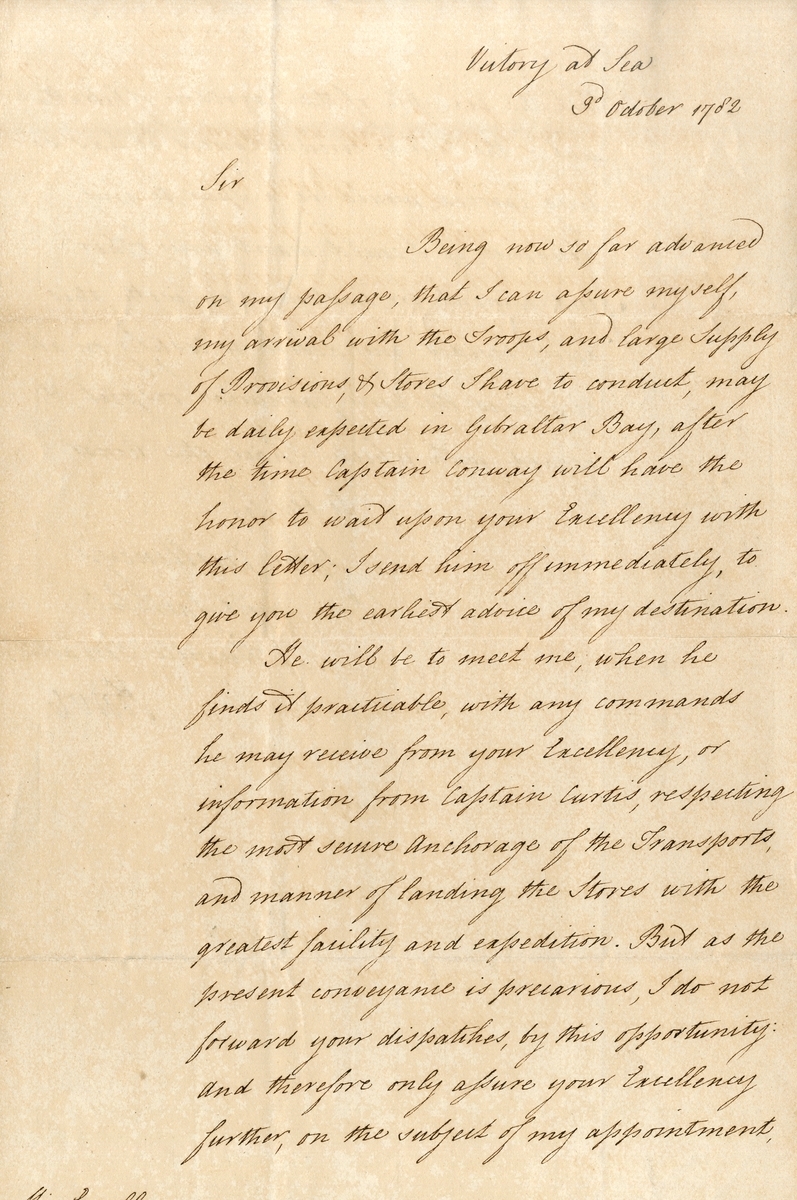 Victory at Sea
3d October 1782
Sir
Being now so far advanced
on my paſsage, that I can aſsure myself,
my arrival with the Troops, and large Supply
of Provisions, & Stores I have to conduct, may
be daily expected in Gibraltar Bay, after
the time Captain Conway will have the
honor to wait upon your Excellency with
this letter; I send him off immediately, to
give you the earliest advice of my destination.
He will be to meet me, when he
finds it practicable, with any commands
he may receive from your Excellency, or
information from Captain Curtis, respecting
the most secure Anchorage of the Transports,
and manner of landing the Stores with the
greatest facility and expedition. But as the
present conveyance is precarious, I do not
forward your dispatches, by this opportunity:
And therefore only aſsure your Excellency
further, on the subject of my appointment,